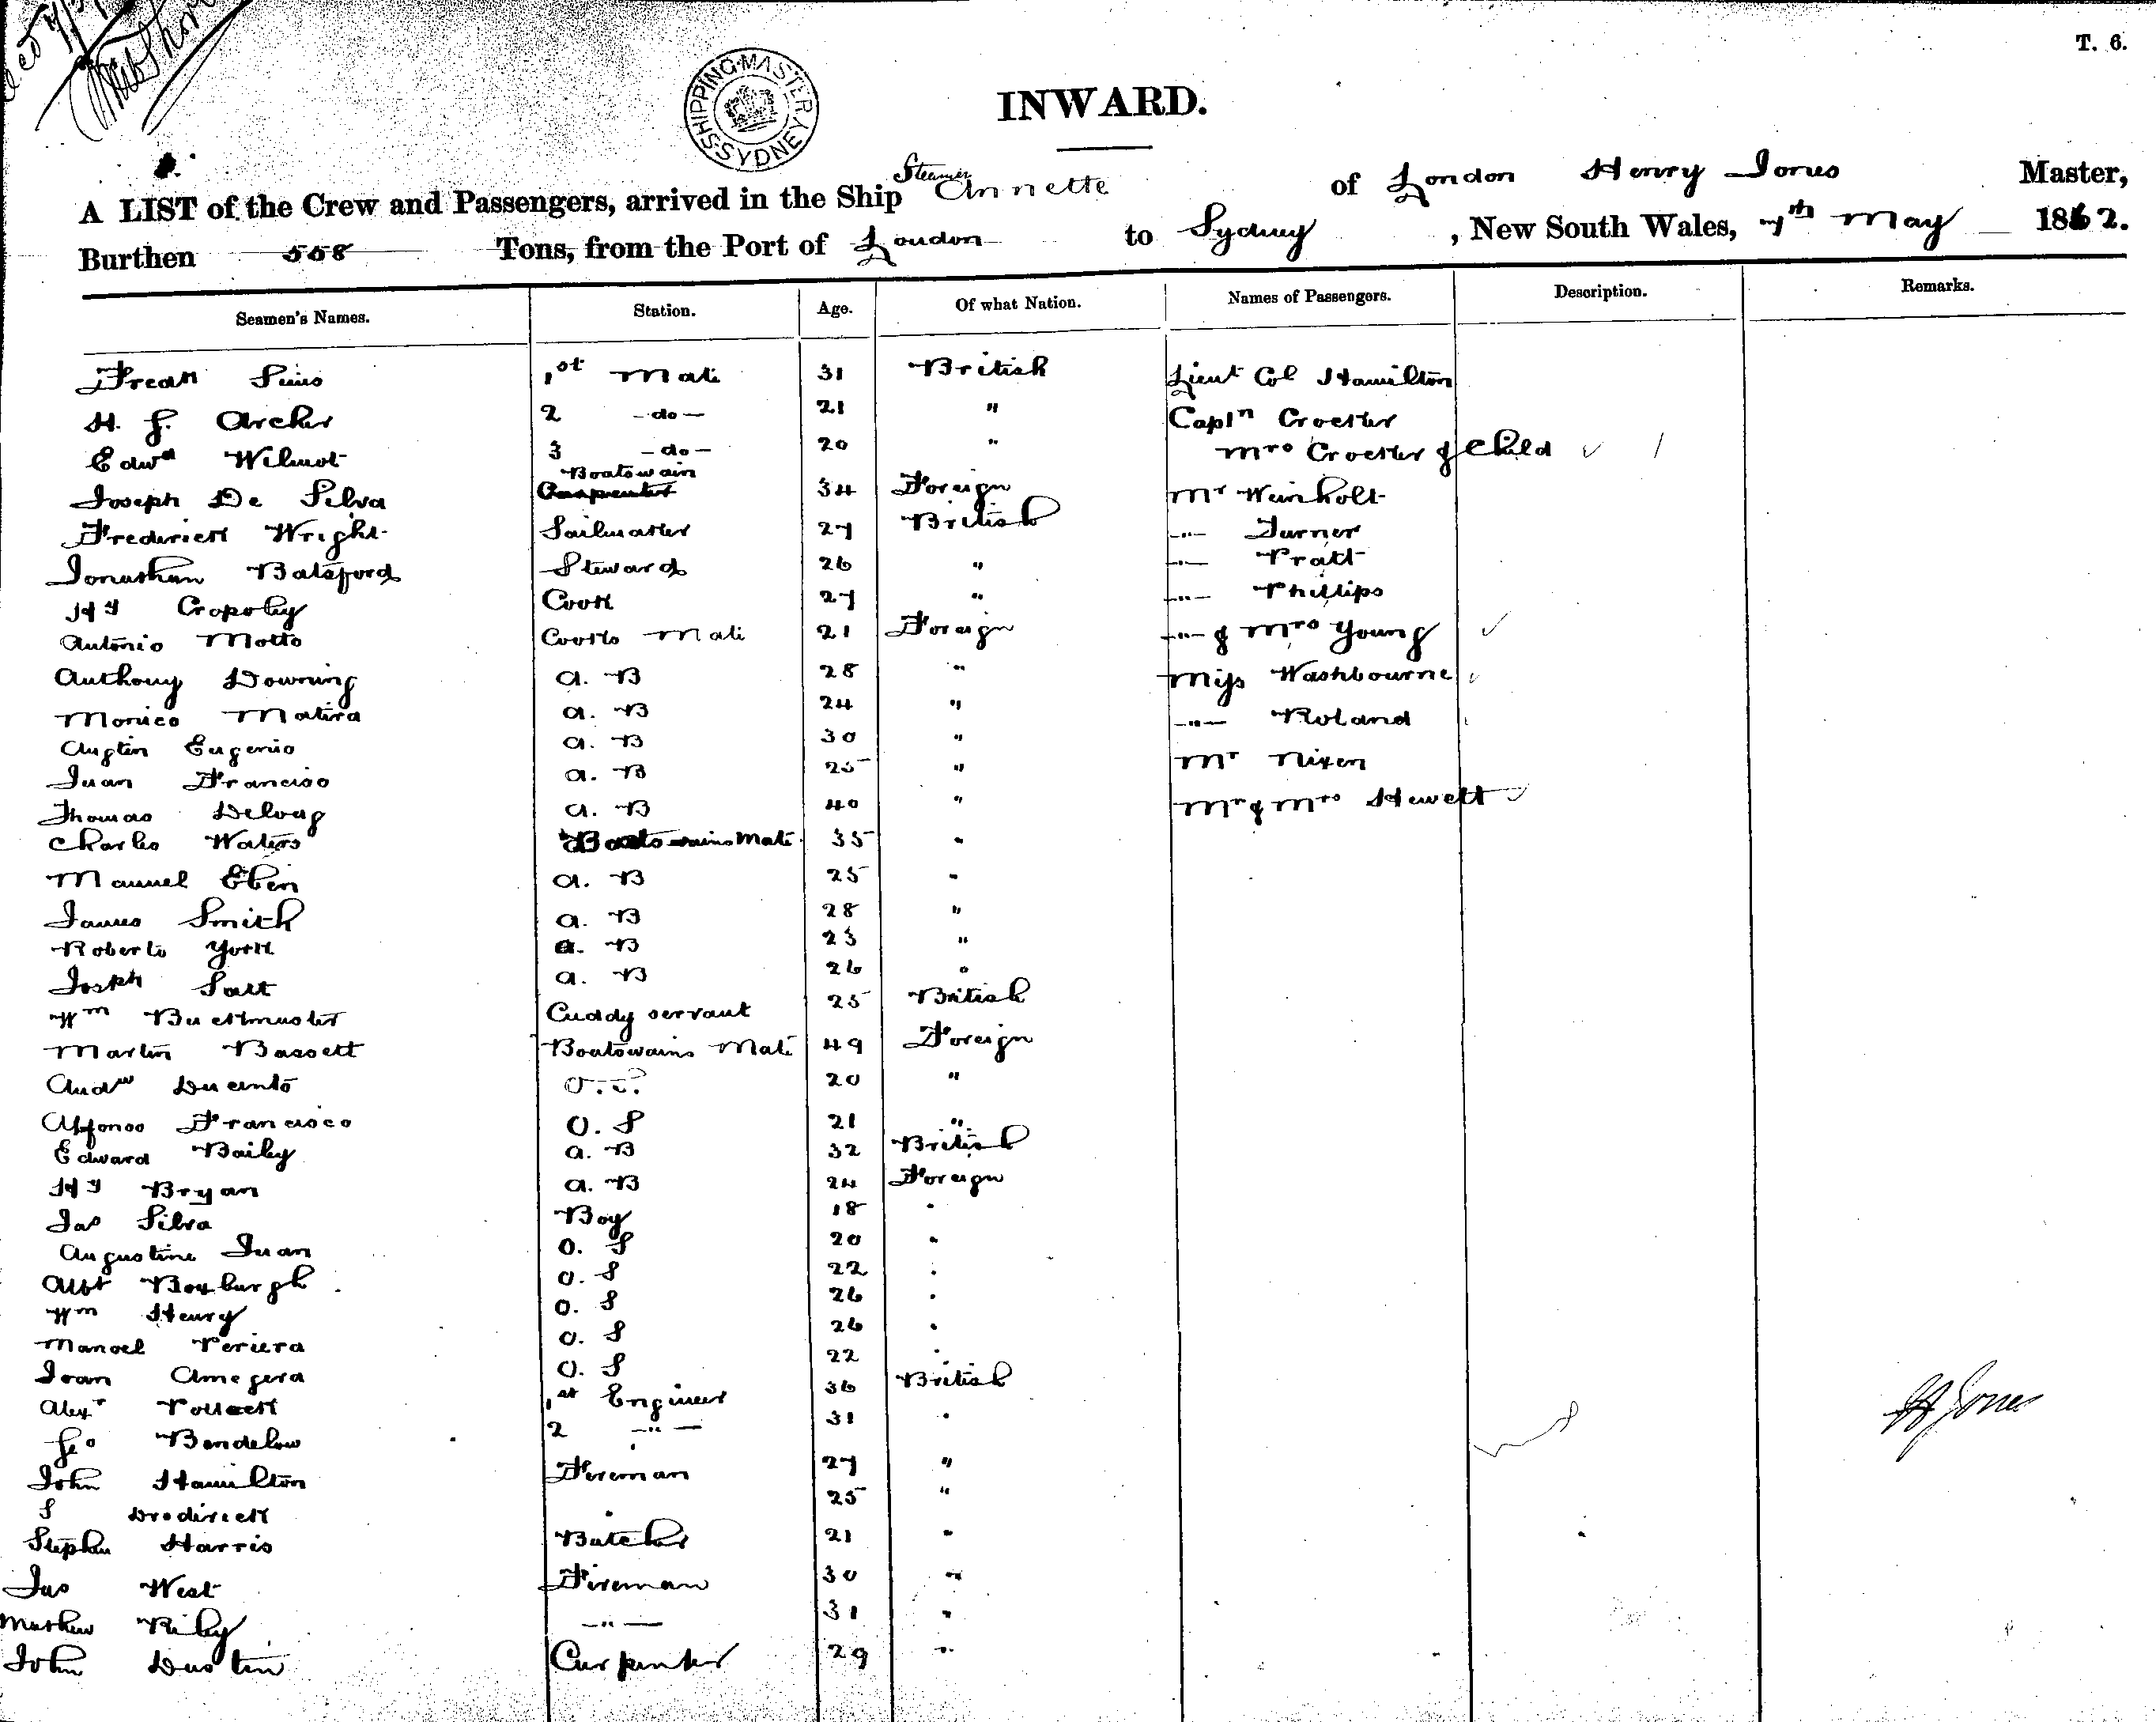 T. 6.
SHIPPING MASTER SYDNEY
INWARD.
A LIST of the Crew and Passengers, arrived in the Ship Steamer Annette of London Henry Jones Master,
Burthen 558 Tons, from the Port of London to Sydney, New South Wales, 7th May 1862.
Seamen's Names. Station. Age. Of what Nation. Names of Passengers. Description. Remarks.
Fredk 1st Mate 31 British Lieut Col Hamilton
H. G. Archer 2 -do- 21 " Captn Croester
Edwd Wilmot 3 -do- 20 " Mrs Croester & Child
Joseph De Silva Boatswain 34 Foreign Mr Weinholt
Frederick Wright Sailmaker 27 British -"- Turner
Jonathan Batsford Steward 26 " -"- Pratt
Hy Cropoley Cook 27 " -"- Phillips
Antonio Motto Cooks Mate 21 Foreign -"- & Mrs Young
Anthony Downing A. B 28 " Miss Washbourne
Monico Matira A. B 24 " -"- Roland
Augtin Eugenio A. B 30 " Mr Nixen
Juan Franciso A. B 25 " Mr & Mrs Hewett
Thomas Delong A. B 40 "
Charles Waters Boatswains Mate 35 "
Manuel Eben A. B 25 "
James Smith A. B 28 "
Roberto York A. B 23 "
Josph Salt A. B 26 "
Wm Buckmaster Cuddy servant 25 British
Martin Bassett Boatswains Mate 49 Foreign
Andw Ducinto O. S. 20 "
Alfonso Francisco O. S 21 "
Edward Bailey A. B 32 British
Hy Bryan A. B 24 Foreign
Jas Silva Boy 18 "
Augustine Juan O. S 20 "
Albt Boxburgh O. S 22 "
Wm Henry O. S 26 "
Manoel Periera O. S 26 "
Joan Amegera O. S 22 "
Alexr Pollock 1st Engineer 36 British
Geo Bendelow 2 -"- 31 "
H Jones
John Hamilton Fireman 27 "
S Brodirick " 25 "
Stephen Harris Butcher 21 "
Jas West Fireman 30 "
Mathew Riley -"- 31 "
John Dustin Carpenter 29 "